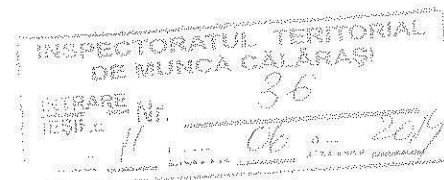 INSPECTORATUL TERITORIAL
DE MUNCA CĂLĂRAȘI
INTRARE Nr. 36
IEȘIRE
11 L 06 a 2014